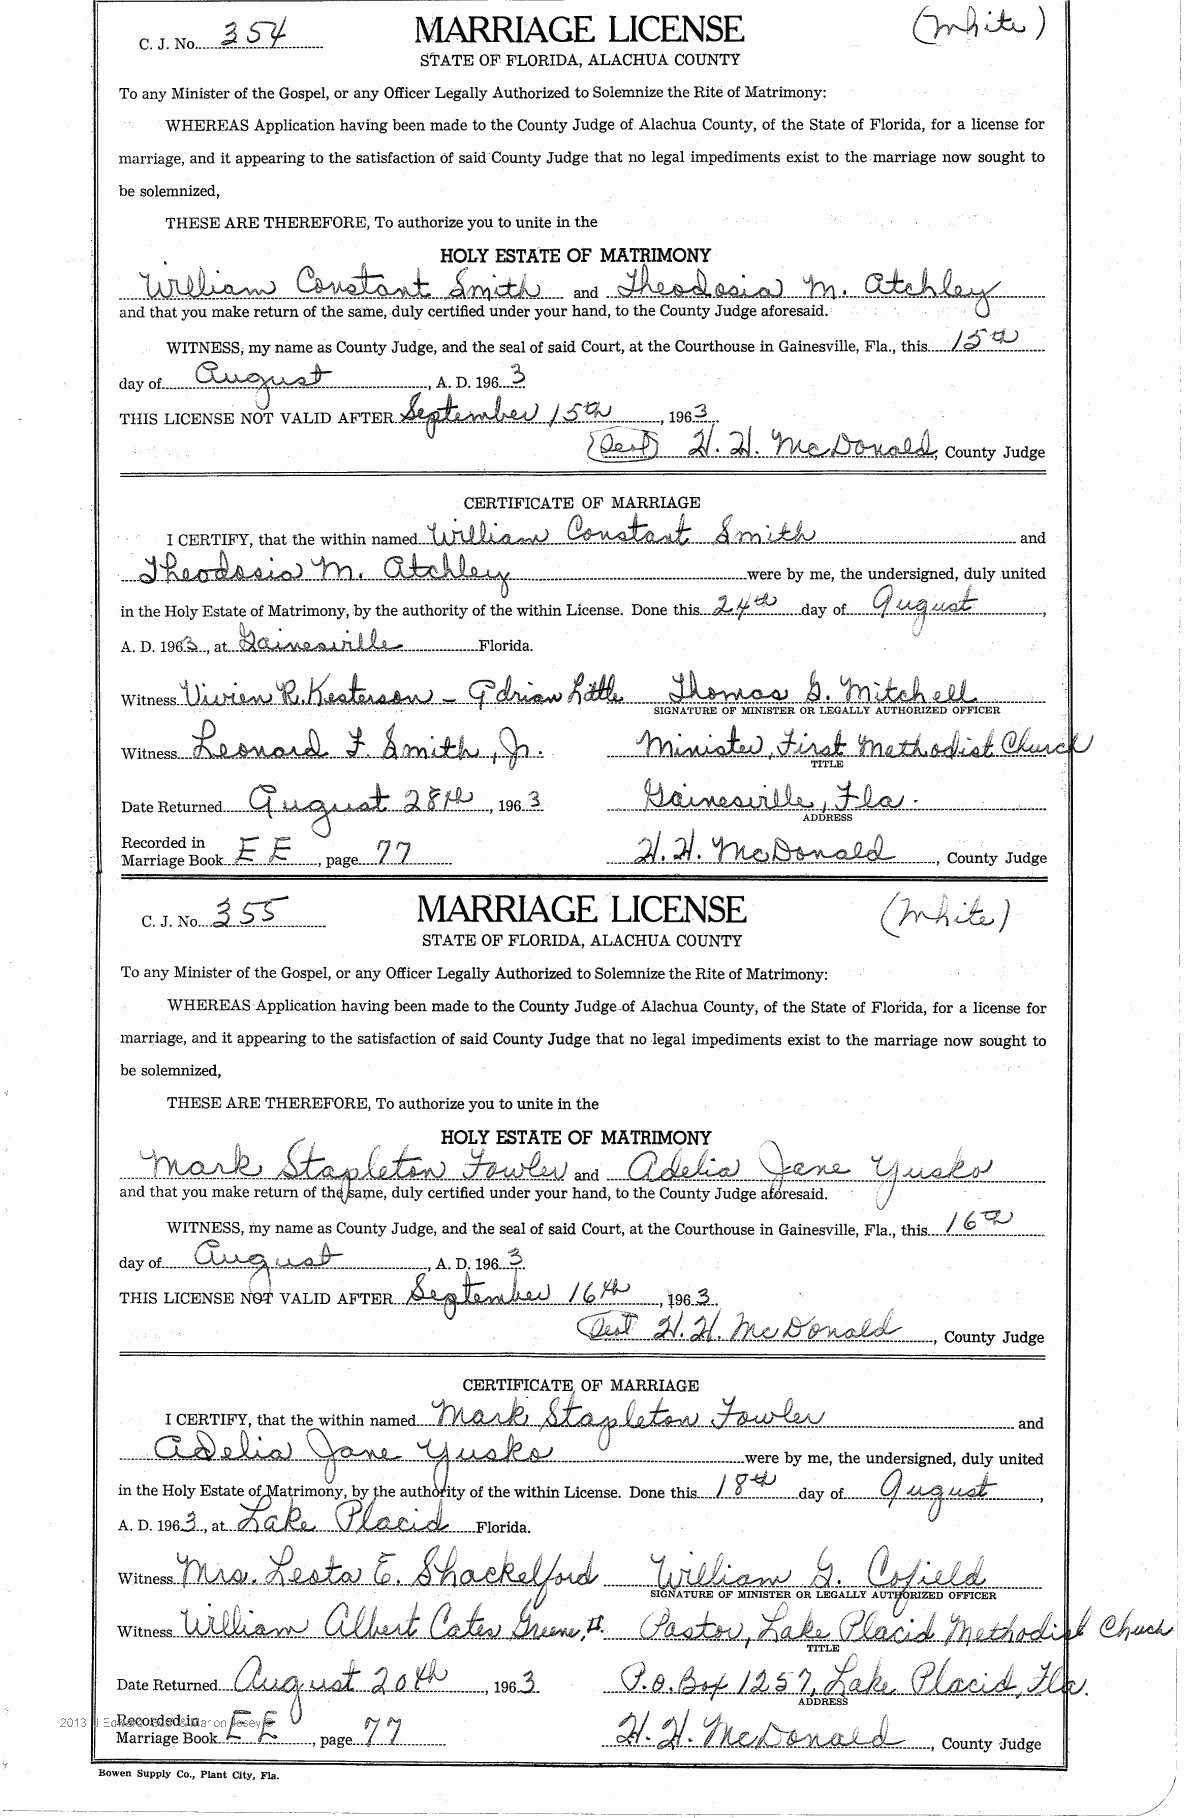 C. J. No. 354 MARRIAGE LICENSE (White)
STATE OF FLORIDA, ALACHUA COUNTY
To any Minister of the Gospel, or any Officer Legally Authorized to Solemnize the Rite of Matrimony:
WHEREAS Application having been made to the County Judge of Alachua County, of the State of Florida, for a license for
marriage, and it appearing to the satisfaction of said County Judge that no legal impediments exist to the marriage now sought to
be solemnized,
THESE ARE THEREFORE, To authorize you to unite in the
HOLY ESTATE OF MATRIMONY
William Constant Smith and Theodosia M. Atchley
and that you make return of the same, duly certified under your hand, to the County Judge aforesaid.
WITNESS, my name as County Judge, and the seal of said Court, at the Courthouse in Gainesville, Fla., this 15th
day of August, A. D. 1963
THIS LICENSE NOT VALID AFTER September 15th, 1963
(Seal) H. H. McDonald, County Judge
CERTIFICATE OF MARRIAGE
I CERTIFY, that the within named William Constant Smith and
Theodosia M. Atchley were by me, the undersigned, duly united
in the Holy Estate of Matrimony, by the authority of the within License. Done this 24th day of August,
A. D. 1963, at Gainesville Florida.
Witness Vivien R. Kesterson - Adrian Little Thomas G. Mitchell
SIGNATURE OF MINISTER OR LEGALLY AUTHORIZED OFFICER
Witness Leonard F. Smith, Jr. Minister, First Methodist Church
TITLE
Date Returned August 28th, 1963 Gainesville, Fla.
ADDRESS
Recorded in
Marriage Book EE, page 77 H. H. McDonald, County Judge
C. J. No. 355 MARRIAGE LICENSE (White)
STATE OF FLORIDA, ALACHUA COUNTY
To any Minister of the Gospel, or any Officer Legally Authorized to Solemnize the Rite of Matrimony:
WHEREAS Application having been made to the County Judge of Alachua County, of the State of Florida, for a license for
marriage, and it appearing to the satisfaction of said County Judge that no legal impediments exist to the marriage now sought to
be solemnized,
THESE ARE THEREFORE, To authorize you to unite in the
HOLY ESTATE OF MATRIMONY
Mark Stapleton Fowler and Adelia Jane Yusko
and that you make return of the same, duly certified under your hand, to the County Judge aforesaid.
WITNESS, my name as County Judge, and the seal of said Court, at the Courthouse in Gainesville, Fla., this 16th
day of August, A. D. 1963.
THIS LICENSE NOT VALID AFTER September 16th, 1963
(Seal) H. H. McDonald, County Judge
CERTIFICATE OF MARRIAGE
I CERTIFY, that the within named Mark Stapleton Fowler and
Adelia Jane Yusko were by me, the undersigned, duly united
in the Holy Estate of Matrimony, by the authority of the within License. Done this 18th day of August,
A. D. 1963, at Lake Placid Florida.
Witness Mrs. Lesta E. Shackelford William G. Cofield
SIGNATURE OF MINISTER OR LEGALLY AUTHORIZED OFFICER
Witness William Albert Cates Greene, II. Pastor, Lake Placid Methodist Chuch
TITLE
Date Returned August 20th, 1963 P.O. Box 1257, Lake Placid, Fla.
ADDRESS
2013
Recorded in
Marriage Book EE, page 77 H. H. McDonald, County Judge
Bowen Supply Co., Plant City, Fla.